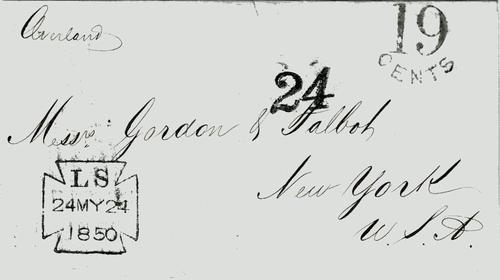 Overland
19
CENTS
24
Messrs. Gordon & Talbot
New York
U.S.A.
LS
24MY24
1850